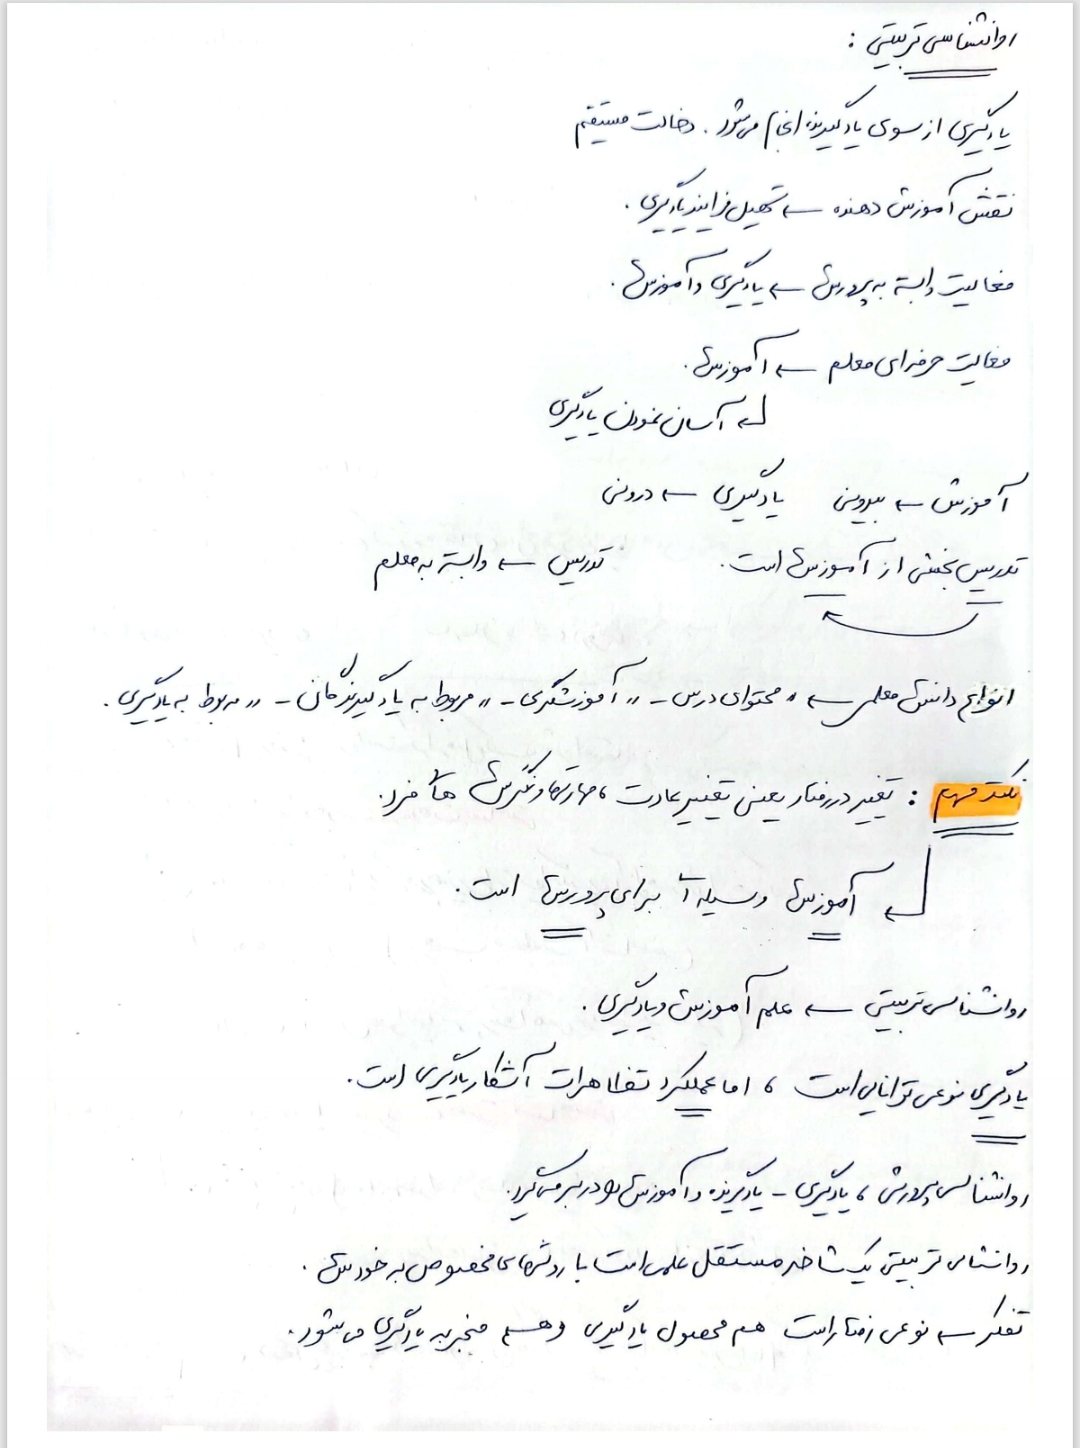 روانشناسی تربیتی :
یادگیری از سوی یادگیرنده انجام می‌شود . دخالت مستقیم
نقش آموزش دهنده ← تسهیل فرایند یادگیری .
فعالیت وابسته به پرورش ← یادگیری و آموزش .
فعالیت حرفه‌ای معلم ← آموزش .
← آسان نمودن یادگیری
آموزش ← بیرونی یادگیری ← درونی
تدریس بخشی از آموزش است . تدریس ← وابسته به معلم
انواع دانش معلمی ← " محتوای درس - " آموزشگری - " مربوط به یادگیرندگان - " مربوط به یادگیری .
نکته مهم : تغییر در رفتار یعنی تغییر عادت ، مهارتها و نگرش های فرد .
← آموزش وسیله ای برای پرورش است .
روانشناسی تربیتی ← علم آموزش و یادگیری .
یادگیری نوعی توانایی است ، اما عملکرد تظاهرات آشکار یادگیری است .
روانشناسی پرورشی ، یادگیری - یادگیرنده و آموزش را در بر می‌گیرد .
روانشناسی تربیتی یک شاخه مستقل علمی است با روشهای مخصوص به خودش .
تفکر ← نوعی رفتار است هم محصول یادگیری و هم منجر به یادگیری می‌شود .